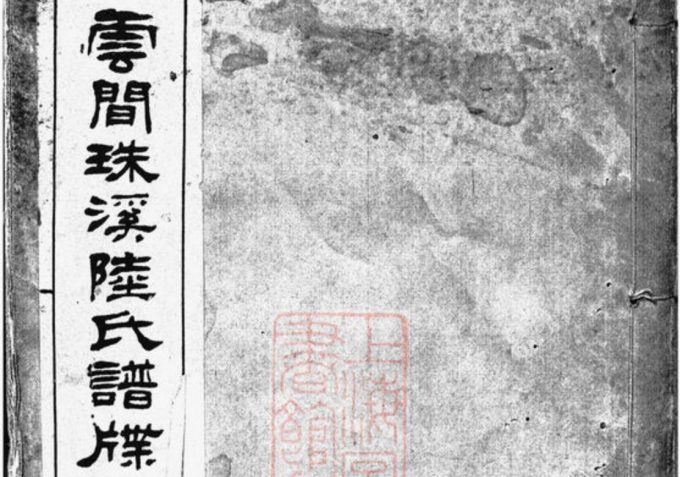 雲間珠溪陸氏譜牒
上海圖
書館